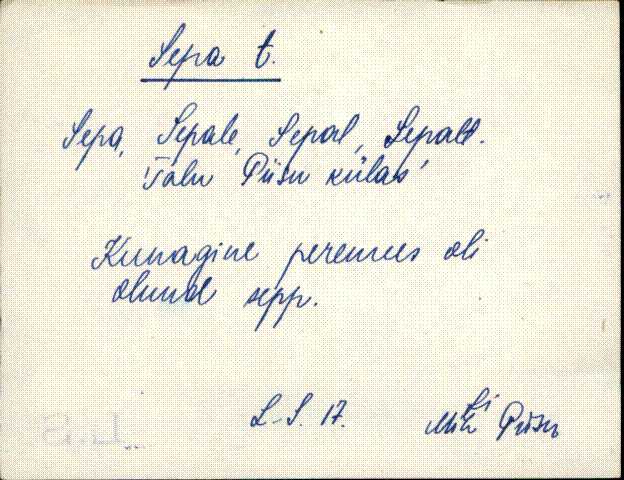 Sepa t.
Sepa, Sepale, Sepal, Sepalt.
'Talu Püsu külas'
Kunagine peremees oli
olnud sepp.
L-S. 17. Püsu